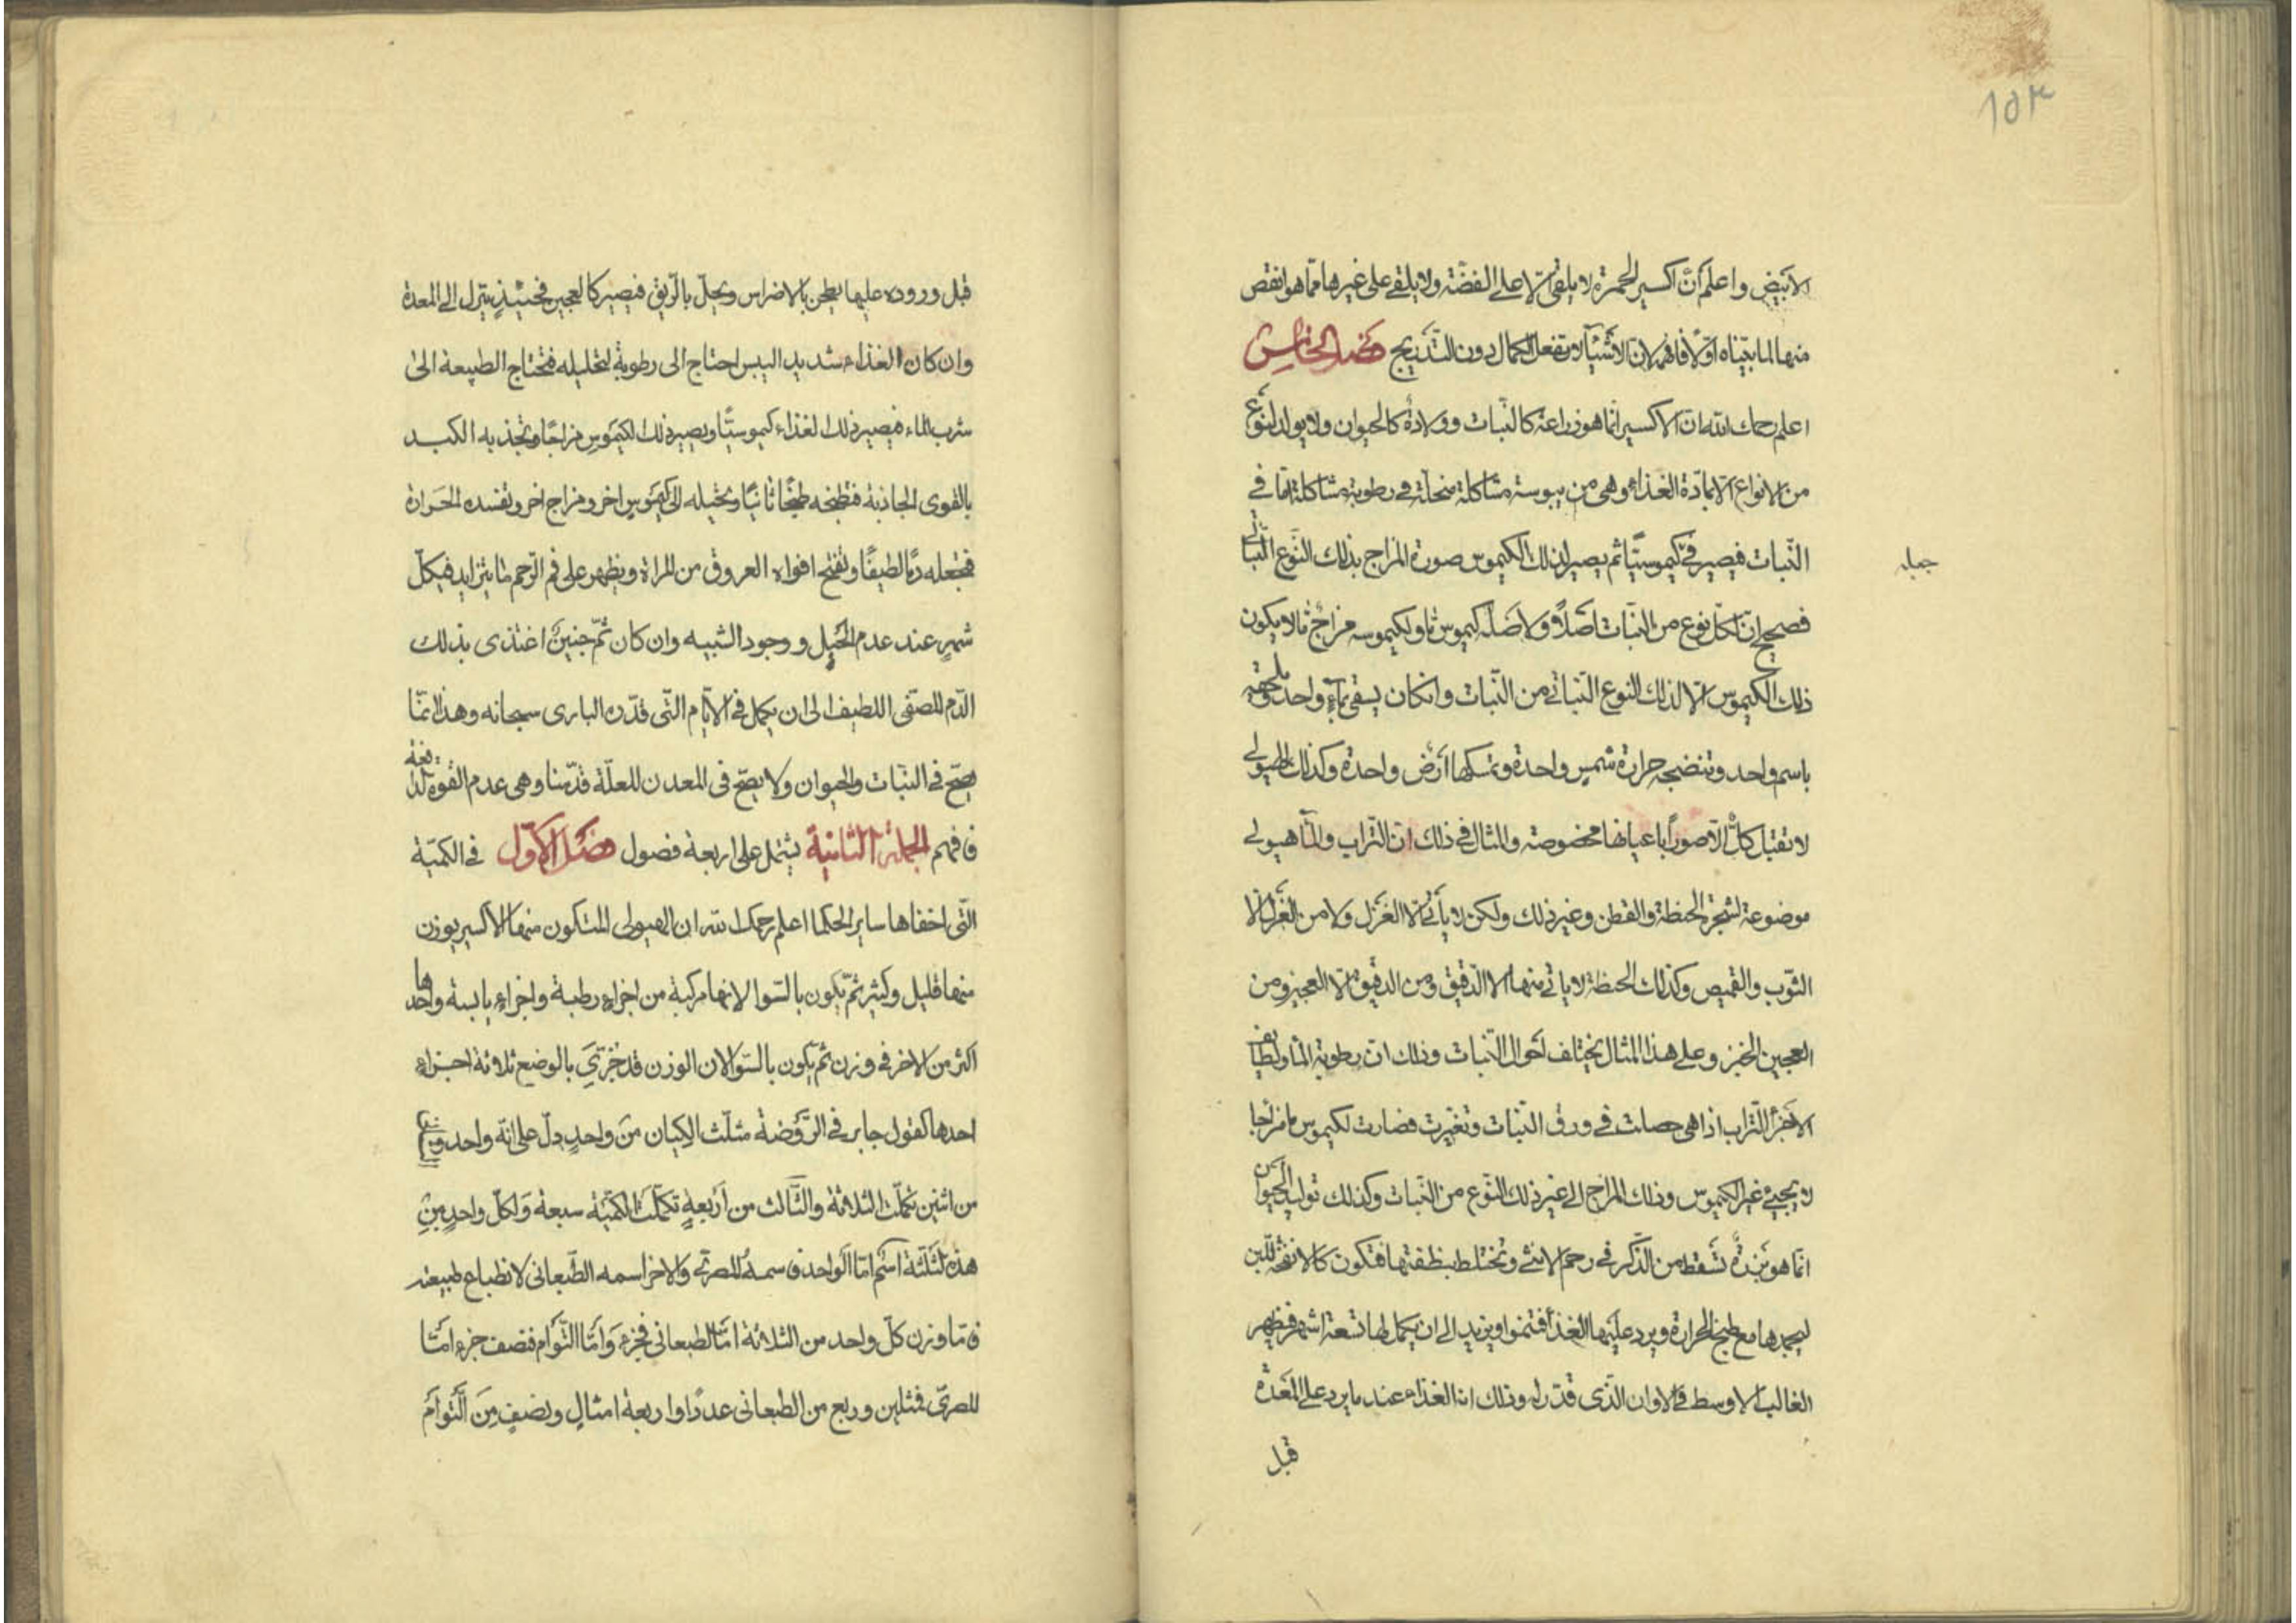 ١٥٣
الابيض واعلم انّ اكسير الحمرة لا يلقى الّا على الفضّة ولا يلقى على غيرها ممّا هو انقص
منها لما بيّناه اوّلا فافهم لانّ الاشيآ لا تفعل الكمال دون التّدريج فصل الخامس
اعلم رحمك الله انّ الاكسير انّما هو زراعة كالنّبات وولادة كالحيوان ولا يولد لنوع
من الانواع الّا بمادّة الغذاء وهى من يبوسة مشاكلة منحلّة فى رطوبة مشاكلة امّا فى
النّبات فيصير فى كيموستيّا ثم يصير لذلك الكيموس صورة المزاج بذلك النّوع النّباتى
جمله
فصحيح انّ لكل نوع من النّبات اصلاً ولاصله كيموس ثا ولكيموسه مزاج ثا لا يكون
ذلك الكيموس الّا لذلك النوع النّباتى من النّبات وان كان يسقى بمآءٍ واحد
باسم واحد وتنضجه حرارة شمس واحدة وتمسكها ارض واحدة وكذلك الهيولى
لا تقبل كلّ الّا صوراً باعيانها مخصوصة والمثال فى ذلك انّ التّراب والمآ هيولى
موضوعة لشجرة الحنطة والقطن وغير ذلك ولكن لا يأتى الّا الغزل ولا من الغزل الّا
الثّوب والقميص وكذلك الحنطة لا ياتى منها الا الدّقيق ومن الدقيق الّا العجين ومن
العجين الخبز وعلى هذا المثال يختلف احوال النّبات وذلك انّ رطوبة المآ ولطايف
الاجزآ التّراب اذا هى حصلت فى ورق النّبات وتغيّرت فصارت لكيموس ما مزاجا
لا يجىء غير الكيموس وذلك المزاج الى غير ذلك النّوع من النّبات وكذلك توليد الحيوان
انّما هو بزرة تسقط من الذّكر فى رحم الانثى وتختلط بنطفتها فتكون كالانفحة للّبن
ليجمدها مع طبخ الحرارة ويرد عليها الغذآ فتنموا ويزيد الى ان يكمل لها تسعة اشهر فيظهر
الغالب الاوسط فى الاوان الّذى قدّر له وذلك انا الغذاء عند ما يرد على المعدة
قبل
قبل وروده عليها يطحن بالاضراس ويحلّ بالرّيق فيصير كالعجين فحينئذٍ يتزل الى المعدة
وان كان الغذاء شديد اليبس احتاج الى رطوبة لتحليله فتحتاج الطبيعة الى
شرب الماء فيصير ذلك الغذاء كيموستيّا ويصير ذلك الكيموس مزاجًا وتجذبه الكبد
بالقوى الجاذبة فتطبخه طبخًا ثانيًا وتحيله الى كيموس اخر ومزاج اخر وتفسده الحرارة
فتجعله دمًا لطيفًا وتفتح افواه العروق من المراة ويظهر على فم الرّحم ما يتزايد فى كلّ
شهرٍ عند عدم الحبل ووجود الشبيه وان كان ثمّ جنينٌ اغتذى بذلك
الدّم المصفّى اللطيف الى ان يكمل فى الايّام الّتى قدّره البارى سبحانه وهذا انّما
يصحّ فى النبّات والحيوان ولا يصحّ فى المعدن للعلّة قدّمنا وهى عدم القوة الدافعة
فافهم الجملة الثانية يشتمل على اربعة فصول فصل الاوّل فى الكميّة
الّتى اخفاها ساير الحكما اعلم رحمك الله ان الهيولى المتكون منها الاكسير يوزن
منها قليل وكثير ثمّ يكون بالسّوا لانها مركبة من اجزاء رطبة واجزاء يابسة واحدها
اكثر من الاخر فى وزن ثم يكون بالسّوا لان الوزن قد جزّئ بالوضع ثلاثة اجزاء
احدها كقول جابر فى الرّوضة مثلّث الكيان من واحدٍ دلّ على انّه واحد
من اثنين تكمّلت الثلاثة والثّالث من اربعةٍ تكمّلت الكميّة سبعة ولكلّ واحدٍ من
هذه الثلثة اسم امّا الواحد فاسمه والاخر اسمه الطّبعانى لانطباع طبيعته
فامّا وزن كلّ واحد من الثلاثة امّا الطبعانى فجزء وامّا التّوام فنصف جزء امّا
فمثلين وربع من الطبعانى عددًا واربعة امثال ونصف من التّوام